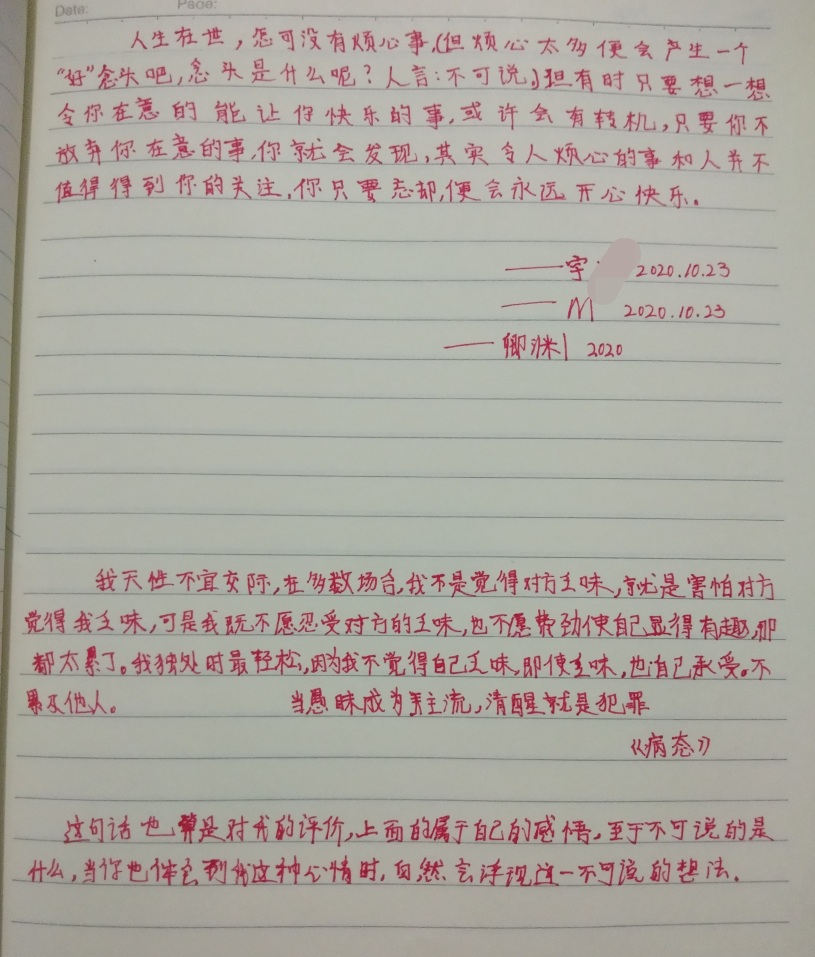 Date: Page:
人生在世，怎可没有烦心事，(但烦心太多便会产生一个
“好”念头吧，念头是什么呢？人言：不可说。)但有时只要想一想
令你在意的能让你快乐的事，或许会有转机，只要你不
放弃你在意的事，你就会发现，其实令人烦心的事和人并不
值得得到你的关注，你只要忘却，便会永远开心快乐。
——宇 2020.10.23
—— M 2020.10.23
—— 卿洣 2020
我天性不宜交际，在多数场合，我不是觉得对方乏味，就是害怕对方
觉得我乏味，可是我既不愿忍受对方的乏味，也不愿费劲使自己显得有趣，那
都太累了。我独处时最轻松，因为我不觉得自己乏味，即使乏味，也自己承受。不
累及他人。 当愚昧成为主流，清醒就是犯罪
《病态》
这句话也算是对我的评价，上面的属于自己的感悟。至于不可说的是
什么，当你也体会到我这种心情时，自然会浮现这一不可说的想法。